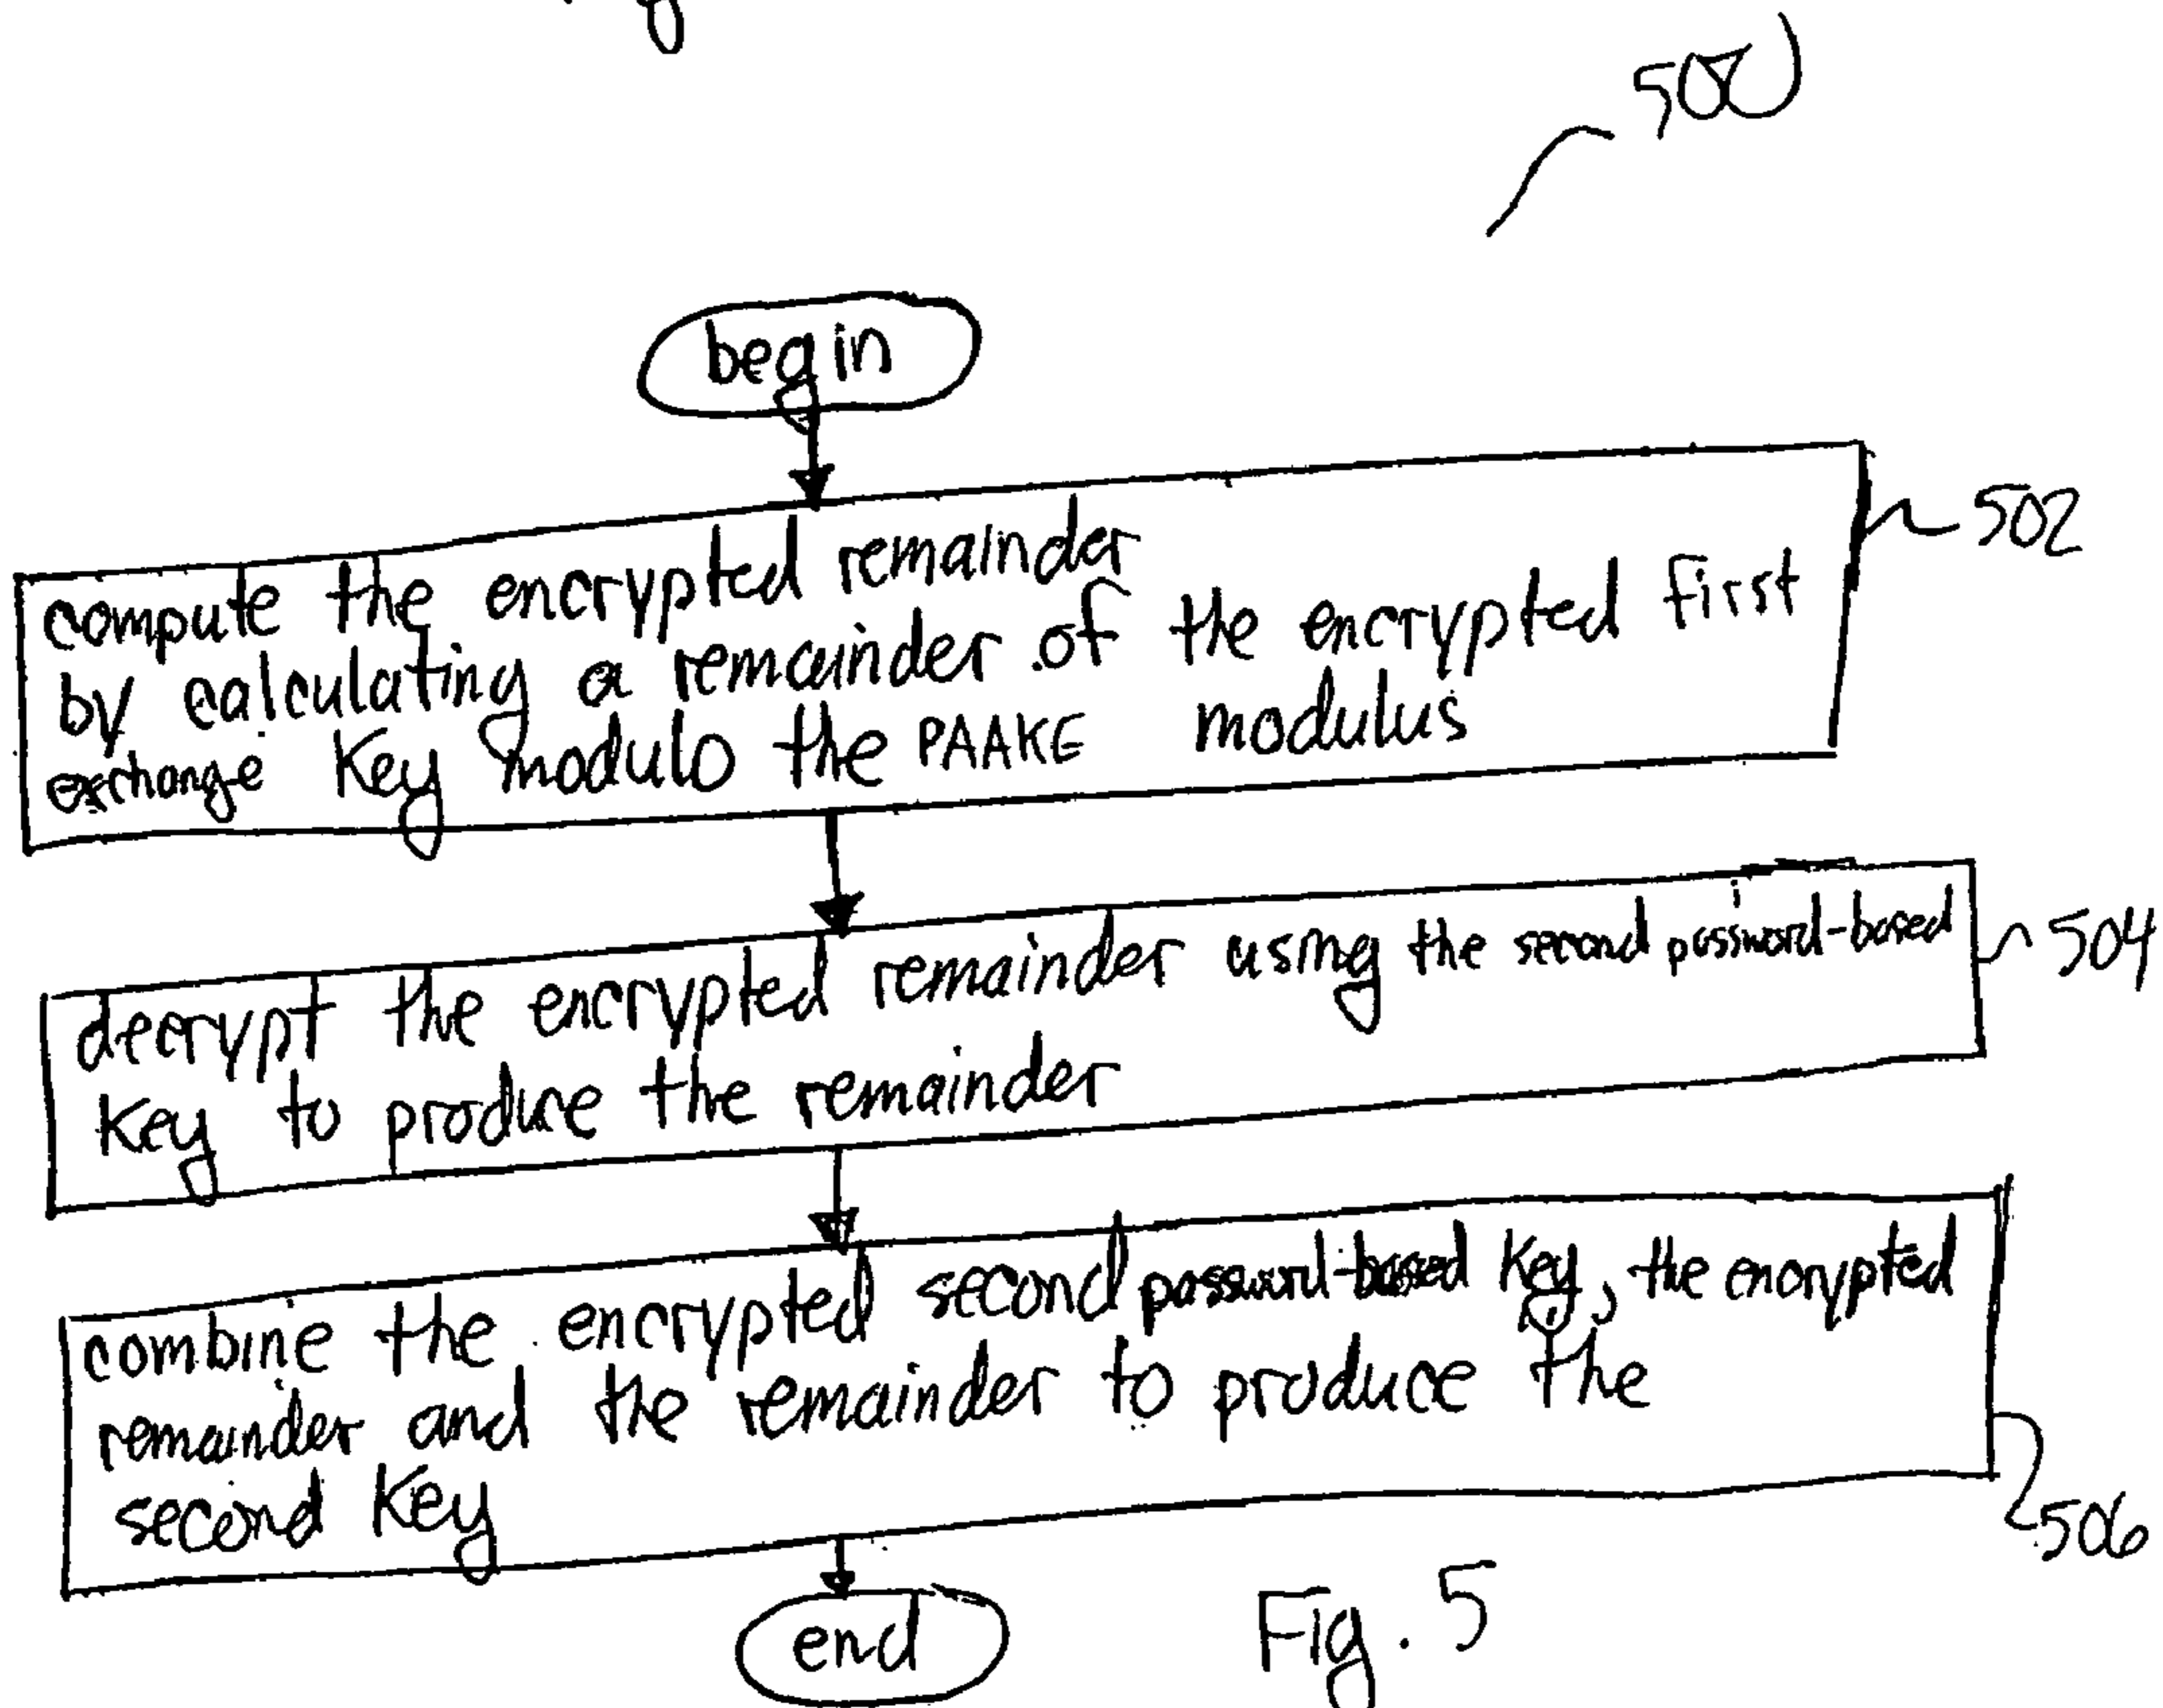 500
begin
502
compute the encrypted remainder
by calculating a remainder of the encrypted first
exchange Key modulo the PAAKE modulus
decrypt the encrypted remainder using the second password-based
504
Key to produce the remainder
combine the encrypted second password-based Key, the encrypted
remainder and the remainder to produce the
second Key
506
end
Fig. 5